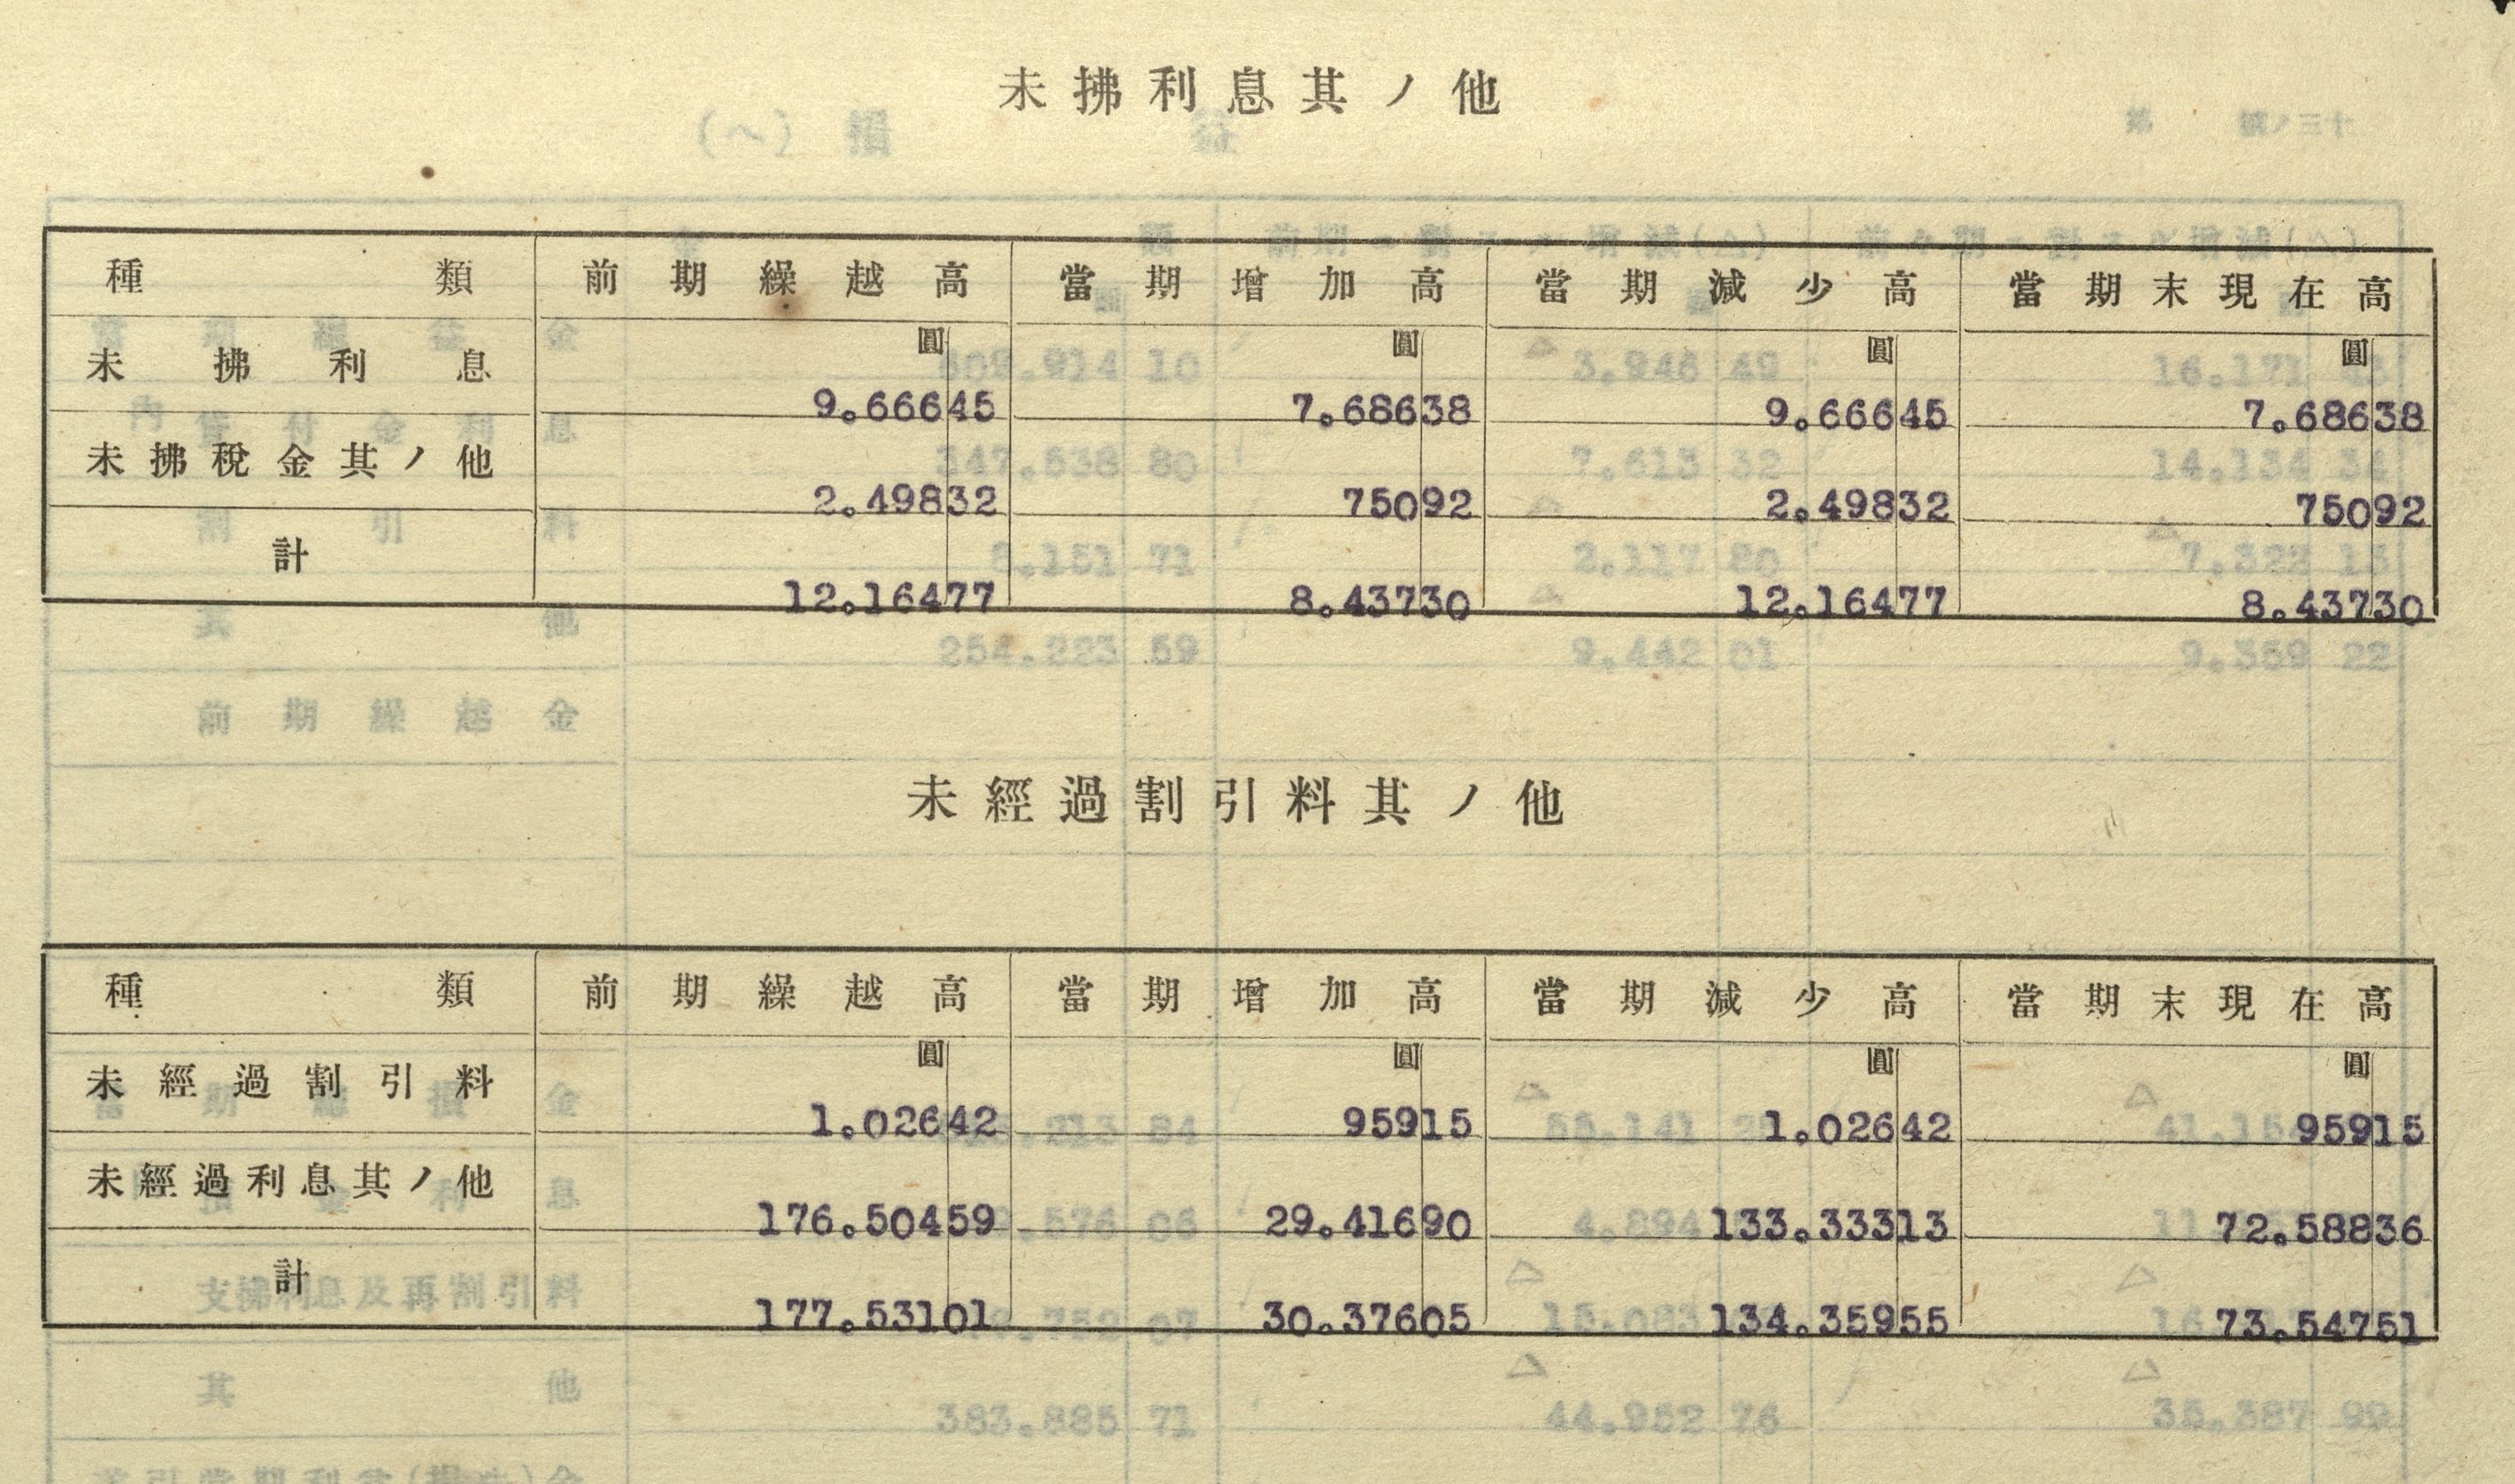 未拂利息其ノ他
種類 前期繰越高 當期增加高 當期減少高 當期末現在高
圓 圓 圓 圓
未拂利息 9.666 45 7.686 38 9.666 45 7.686 38
未拂稅金其ノ他 2.498 32 750 92 2.498 32 750 92
計 12.164 77 8.437 30 12.164 77 8.437 30
未經過割引料其ノ他
種類 前期繰越高 當期增加高 當期減少高 當期末現在高
圓 圓 圓 圓
未經過割引料 1.026 42 959 15 1.026 42 959 15
未經過利息其ノ他 176.504 59 29.416 90 133.333 13 72.588 36
計 177.531 01 30.376 05 134.359 55 73.547 51